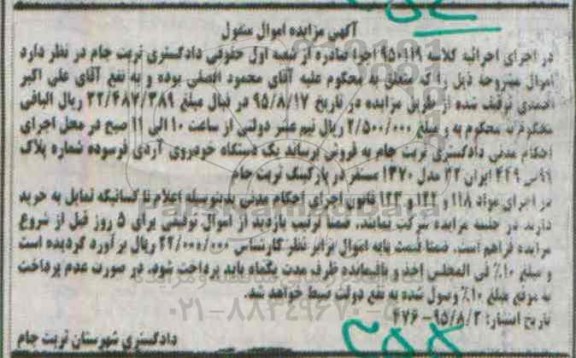 آگهی مزایده اموال منقول
در اجرای اجرائیه کلاسه ۹۵۰۱۱۹ اجرا صادره از شعبه اول حقوقی دادگستری تربت جام در نظر دارد
اموال مشروحه ذیل را که متعلق به محکوم علیه آقای محمود افضلی بوده و به نفع آقای علی اکبر
احمدی توقیف شده از طریق مزایده در تاریخ ۹۵/۸/۱۷ در قبال مبلغ ۳۲/۴۸۷/۳۸۹ ریال الباقی
محکوم به و مبلغ ۲/۵۰۰/۰۰۰ ریال نیم عشر دولتی از ساعت ۱۰ الی ۱۱ صبح در محل اجرای
احکام مدنی دادگستری تربت جام به فروش برساند یک دستگاه خودروی آردی فرسوده شماره پلاک
۹۹س۴۴۹ ایران ۳۲ مدل ۱۳۷۰ مستقر در پارکینگ تربت جام
در اجرای مواد ۱۱۸ و ۱۲۲ و ۱۲۳ قانون اجرای احکام مدنی بدینوسیله اعلام تا کسانیکه تمایل به خرید
دارند در جلسه مزایده شرکت نمایند. ضمنا ترتیب بازدید از اموال توقیفی برای ۵ روز قبل از شروع
مزایده فراهم است. ضمنا قیمت پایه اموال برابر نظر کارشناس ۲۲/۰۰۰/۰۰۰ ریال برآورد گردیده است
و مبلغ ۱۰٪ فی المجلس اخذ و باقیمانده ظرف مدت یکماه باید پرداخت شود. در صورت عدم پرداخت
به موقع مبلغ ۱۰٪ وصول شده به نفع دولت ضبط خواهد شد.
تاریخ انتشار: ۹۵/۸/۲-۴۷۶
دادگستری شهرستان تربت جام
۰۲۱-۸۸۳۴۹۶۷۰-۵